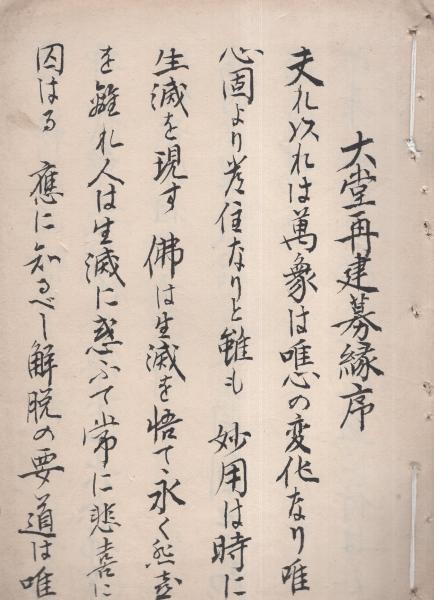 大堂再建募縁序
夫れ以れは萬象は唯心の変化なり唯
心固より常住なりと雖も 妙用は時に
生滅を現す 佛は生滅を悟て永く悲喜
を離れ人は生滅に惑ふて常に悲喜に
囚はる 應に知るべし解脱の要道は唯